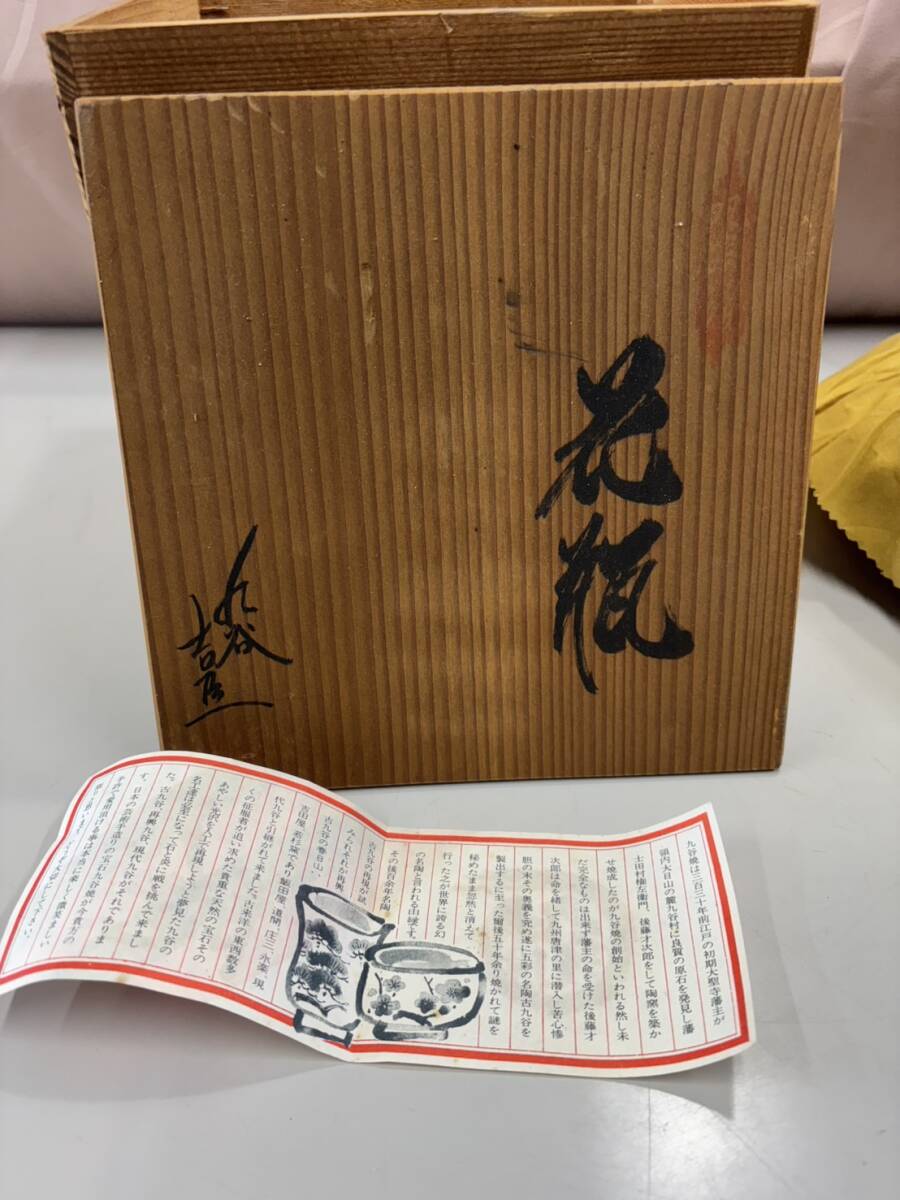 花瓶
九谷
九谷焼は三百三十年前江戸の初期大聖寺藩主が
領内大日山の麓九谷村に良質の原石を発見し藩
士田村権左衛門、後藤才次郎をして陶窯を築か
せ焼成したのが九谷焼の創始といわれる然し未
だ完全なものは出来ず藩主の命を受けた後藤才
次郎は命を賭して九州唐津の里に潜入し苦心惨
胆の末その奥義を究め遂に五彩の名陶古九谷を
製出するに至った爾後五十年余り焼かれて謎を
秘めたまま忽然と消えて
行った之が世界に誇る幻
の名陶と言われる由縁です。
その後百余年名陶
古九谷の再現が試
みられそれが再興
古九谷の春日山、
吉田屋、若杉窯であり飯田屋、道開、庄三、永楽、現
代九谷と引継がれて来ました。古来洋の東西数多
くの征服者が追い求めた貴重な天然の宝石その
あやしい光沢を人工で再現しようと夢見た九谷の
名工達は必至になって石と炎に戦を挑んで来まし
た。古九谷、再興九谷、現代九谷がそれでありま
す。日本の芸術手造りの宝石九谷焼が今貴方の
手許で愛用頂ける事は本当に楽しく慶ばしい